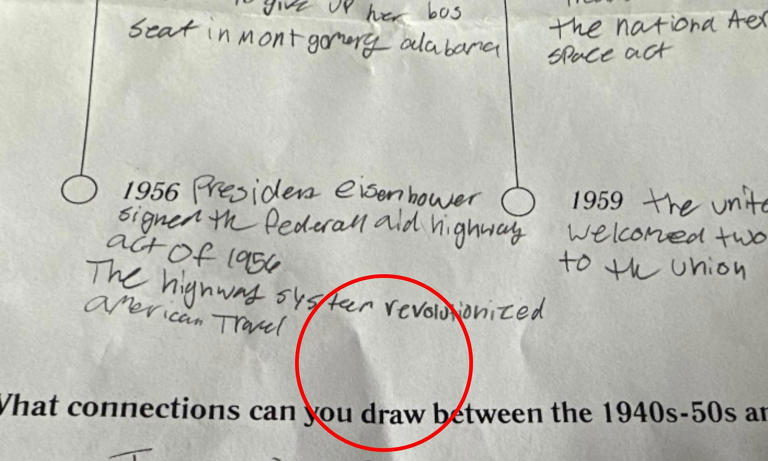 to give up her bus
seat in montgomery alabama
the nationa Aer
space act
1956 Presiden eisenhower
signed the federall aid highway
act Of 1956
The highway systeem revolutionized
american Travel
1959 the unite
welcomed two
to the union
What connections can you draw between the 1940s-50s an